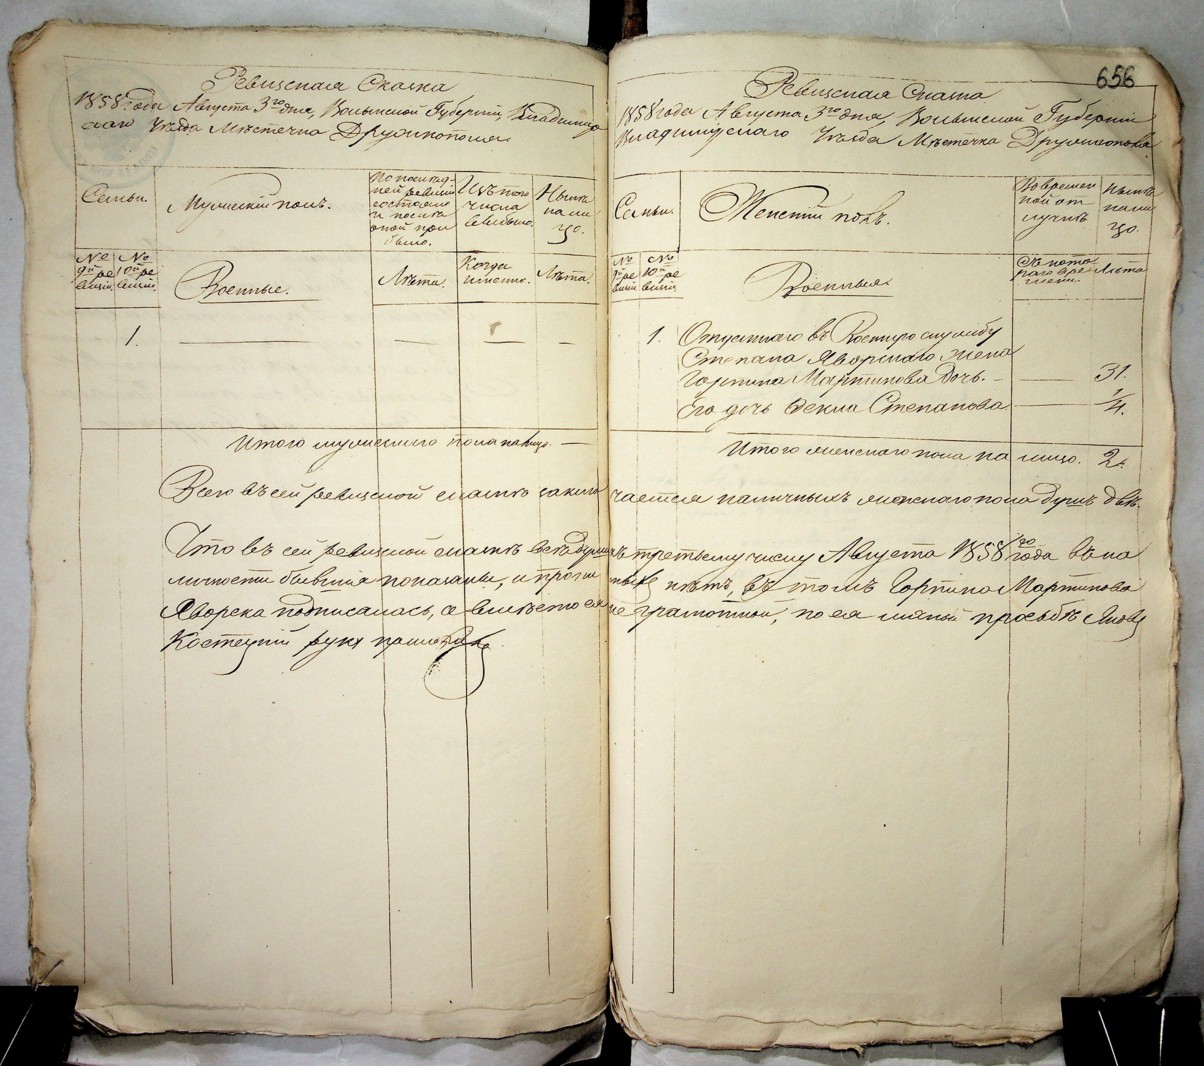 Ревизская Сказка
1858 года Августа 3го дня, Волынской Губернии, Владимир
скаго Уезда Местечка Дружкополя
Семьи.
Мужескій полъ.
По послед-
ней ревизіи
состояло
и после
оной при
было.
Изъ того
числа
выбыло.
Ныне
на ли
цо.
№
9й ре
визіи
№
10й ре
визіи
Военные.
Лѣта.
Когда
именно.
Лѣта.
1.
Итого мужескаго пола на лицо. —
656
Ревизская Сказка
1858 года Августа 3го дня, Волынской Губерніи
Владимірскаго Уѣзда Мѣстечка Дружкополя
Семьи.
Женскій полъ.
Во времен
ной от
лучкѣ
Нынѣ
на ли
цо.
№
9й ре
визіи
№
10й ре
визіи
Военныя.
Съ кото
раго вре
мени.
Лѣта
1. Отпускнаго въ Военную службу
Степана Яворскаго жена
Горпина Мартинова дочь. — 31.
Его дочь Фекла Степанова 1/4.
Итого женскаго пола на лицо. 2.
Всего въ сей ревизской сказкѣ заключается наличныхъ женскаго пола душъ двѣ.
Что въ сей ревизской сказкѣ всѣ души къ третьему числу Августа 1858го года въ на
личности бывшія показаны, и прописныхъ нѣтъ, въ томъ Горпина Мартинова
Яворска подписалась, а вмѣсто ея неграмотной, по ея личной прозьбѣ
руку приложилъ